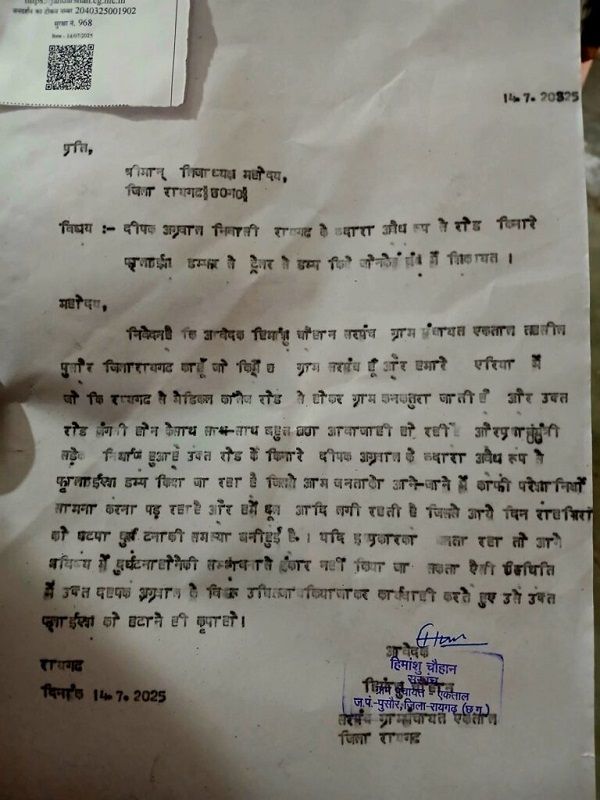 https://jandarshan.cg.nic.in
जनदर्शन का टोकन नम्बर 2040325001902
सुरक्षा नं. 968
दिनांक - 14/07/2025
14.7.2025
प्रति,
श्रीमान् जिलाध्यक्ष महोदय,
जिला रायगढ़§छ0ग0§
विषय :- दीपक अग्रवाल निवासी रायगढ़ के व्दारा अवैध रूप से रोड किनारे
फ्लाईऐश डम्फर से ट्रेलर से डम्प किये जाने के संबंध में शिकायत ।
महोदय,
निवेदन है कि आवेदक हिमांशु चौहान सरपंच ग्राम पंचायत एकताल तहसील
पुसौर जिला रायगढ़ का हूँ जो कि ग्राम सरपंच हूँ और हमारे एरिया में
जो कि रायगढ़ से मेडिकल कालेज रोड से होकर ग्राम कनकतुरा जाती है और उक्त
रोड जंगली होने के साथ साथ-साथ बहुत आवाजाही हो रही है और
सड़क निर्माण हुआ है उक्त रोड के किनारे दीपक अग्रवाल के व्दारा अवैध रूप से
फ्लाईऐश डम्प किया जा रहा है जिससे आम जनता को आने-जाने में काफी परेशानियों
सामना करना पड़ रहा है और हमें धूल आदि लगी रहती है जिससे आये दिन राहगिरों
को दुर्घटना की समस्या बनी हुई है. । यदि इस प्रकार का चलता रहा तो आगे
भविष्य में दुर्घटना होने की सम्भावना से इंकार नहीं किया जा सकता ऐसी स्थिति
में उक्त दीपक अग्रवाल के विरूद्ध उचित कार्यवाही करते हुए उसे उक्त
फ्लाईऐश को हटाने की कृपा हो।
रायगढ़
दिनांक 14.7.2025
आवेदक
हिमांशु चौहान
सरपंच
ग्राम पंचायत - एकताल
ज.पं.-पुसौर, जिला-रायगढ़ (छ.ग.)
हिमांशु चौहान
सरपंच ग्राम पंचायत एकताल
जिला रायगढ़